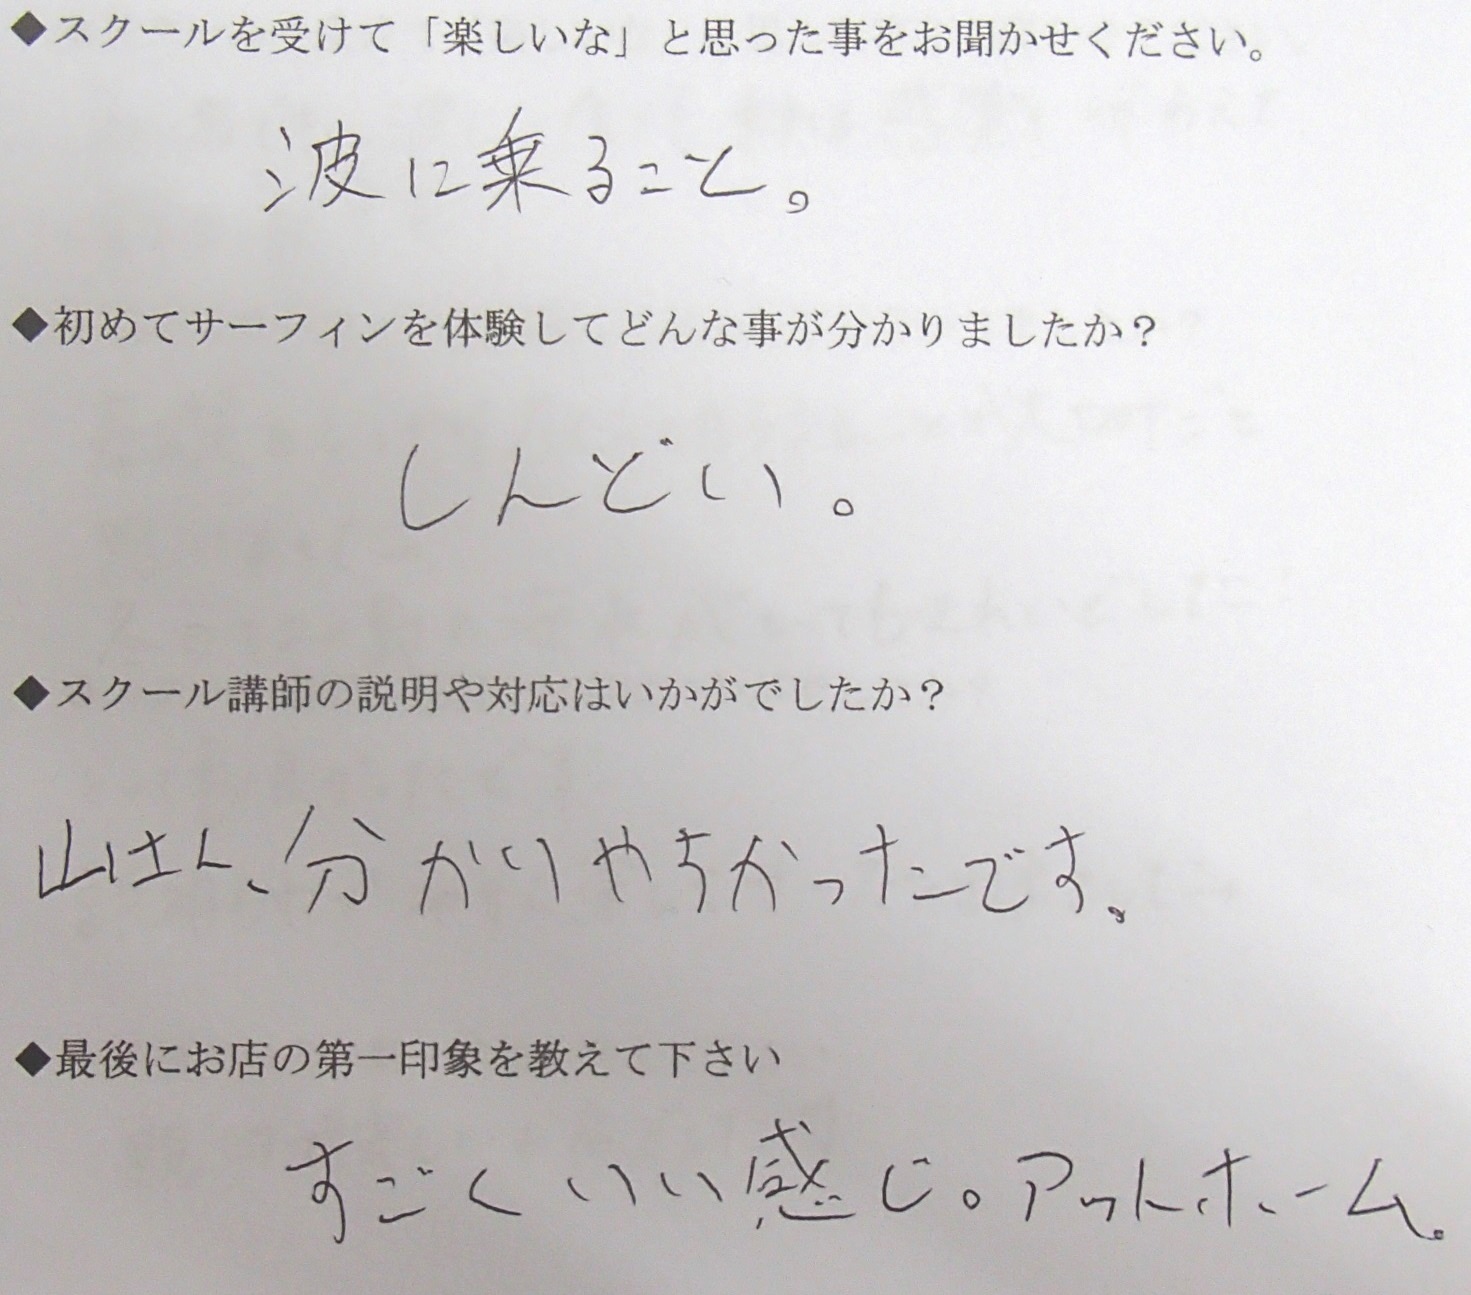 ◆スクールを受けて「楽しいな」と思った事をお聞かせください。
波に乗ること。
◆初めてサーフィンを体験してどんな事が分かりましたか？
しんどい。
◆スクール講師の説明や対応はいかがでしたか？
山はさん、分かりやすかったです。
◆最後にお店の第一印象を教えて下さい
すごくいい感じ。アットホーム。